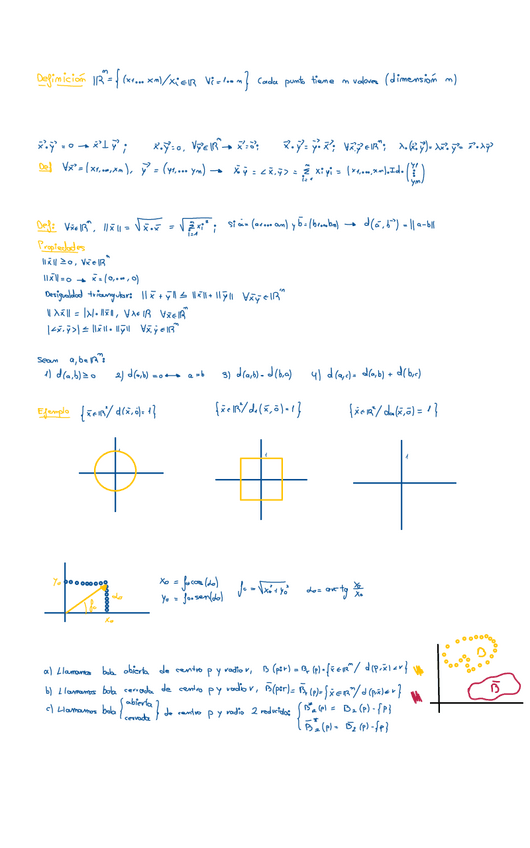 Definición ℝᵐ = { (x1,... xm) / xi ∈ ℝ ∀i = 1... m } Cada punto tiene m valores (dimensión m)
x⃗·y⃗ = 0 → x⃗ ⊥ y⃗ ; x⃗·y⃗ = 0, ∀y⃗ ∈ ℝᵐ → x⃗ = 0⃗; x⃗·y⃗ = y⃗·x⃗; ∀x⃗,y⃗ ∈ ℝᵐ; λ·(x⃗·y⃗) = λx⃗·y⃗ = x⃗·λy⃗
∀x⃗ = (x1,...,xm), y⃗ = (y1,... ym) → x⃗·y⃗ = <x⃗,y⃗> = Σ xi yi = (x1,...,xm)·Id·(y1 ⋮ ym)
Def: ∀x̄ ∈ ℝᵐ, ||x̄|| = √x̄·x̄ = √Σ xi² ; Si ā = (a1... am) y b̄ = (b1... bm) → d(ā, b̄) = ||a-b||
Propiedades
||x̄|| ≥ 0, ∀x̄ ∈ ℝᵐ
||x̄|| = 0 → x̄ = (0,...,0)
Desigualdad triangular: ||x̄ + ȳ|| ≤ ||x̄|| + ||ȳ|| ∀x̄,ȳ ∈ ℝᵐ
||λx̄|| = |λ|·||x̄||, ∀λ ∈ ℝ ∀x̄ ∈ ℝᵐ
|<x̄,ȳ>| ≤ ||x̄||·||ȳ|| ∀x̄,ȳ ∈ ℝᵐ
Sean a,b ∈ ℝᵐ:
1) d(a,b) ≥ 0 2) d(a,b) = 0 ↔ a = b 3) d(a,b) = d(b,a) 4) d(a,c) = d(a,b) + d(b,c)
Ejemplo { x̄ ∈ ℝ² / d(x̄,ō) = 1 } { x̄ ∈ ℝ² / d1(x̄,ō) = 1 } { x̄ ∈ ℝ² / d∞(x̄,ō) = 1 }
1 1 1
y0 x0
x0 = ρ0 cos(α0) ρ0 = √x0² + y0² α0 = arctg
y0 = ρ0 sen(α0)
a) Llamamos bola abierta de centro p y radio r, B(p;r) = Br(p) = { x̄ ∈ ℝᵐ / d(p,x̄) < r }
b) Llamamos bola cerrada de centro p y radio r, B̄(p;r) = B̄r(p) = { x̄ ∈ ℝᵐ / d(p,x̄) ≤ r }
c) Llamamos bola { abierta cerrada } de centro p y radio 2 reducida: { B*2(p) = B2(p) - {p}
B̄*2(p) = B̄2(p) - {p}
B
B̄